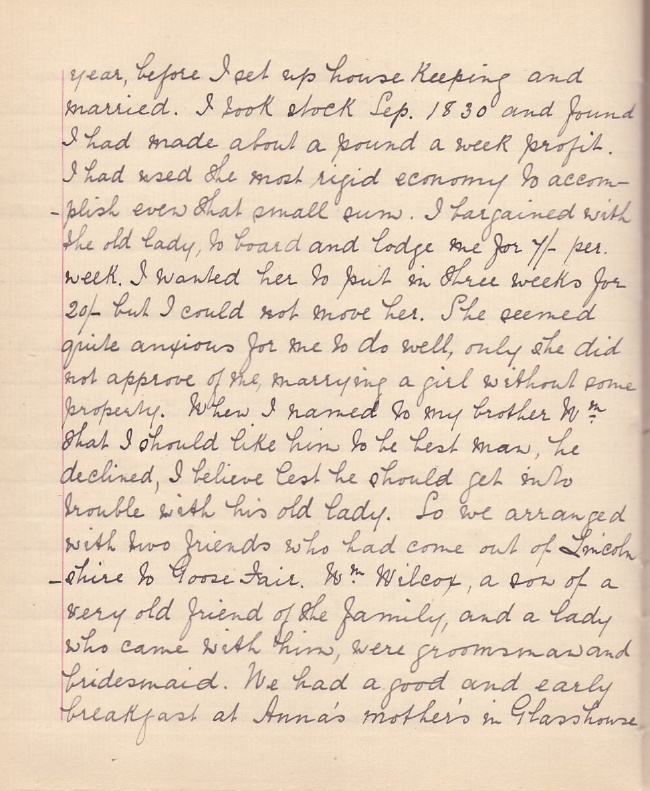 year, before I set up house keeping and
married. I took stock Sep. 1830 and found
I had made about a pound a week profit.
I had used the most rigid economy to accom-
-plish even that small sum. I bargained with
the old lady, to board and lodge me for 7/- per.
week. I wanted her to put in three weeks for
20/- but I could not move her. She seemed
quite anxious for me to do well, only she did
not approve of me, marrying a girl without some
property. When I named to my brother Wm
that I should like him to be best man, he
declined, I believe lest he should get into
trouble with his old lady. So we arranged
with two friends who had come out of Lincoln
-shire to Goose Fair. Wm Wilcox, a son of a
very old friend of the family, and a lady
who came with him, were groomsman and
bridesmaid. We had a good and early
breakfast at Anna's mother's in Glasshouse